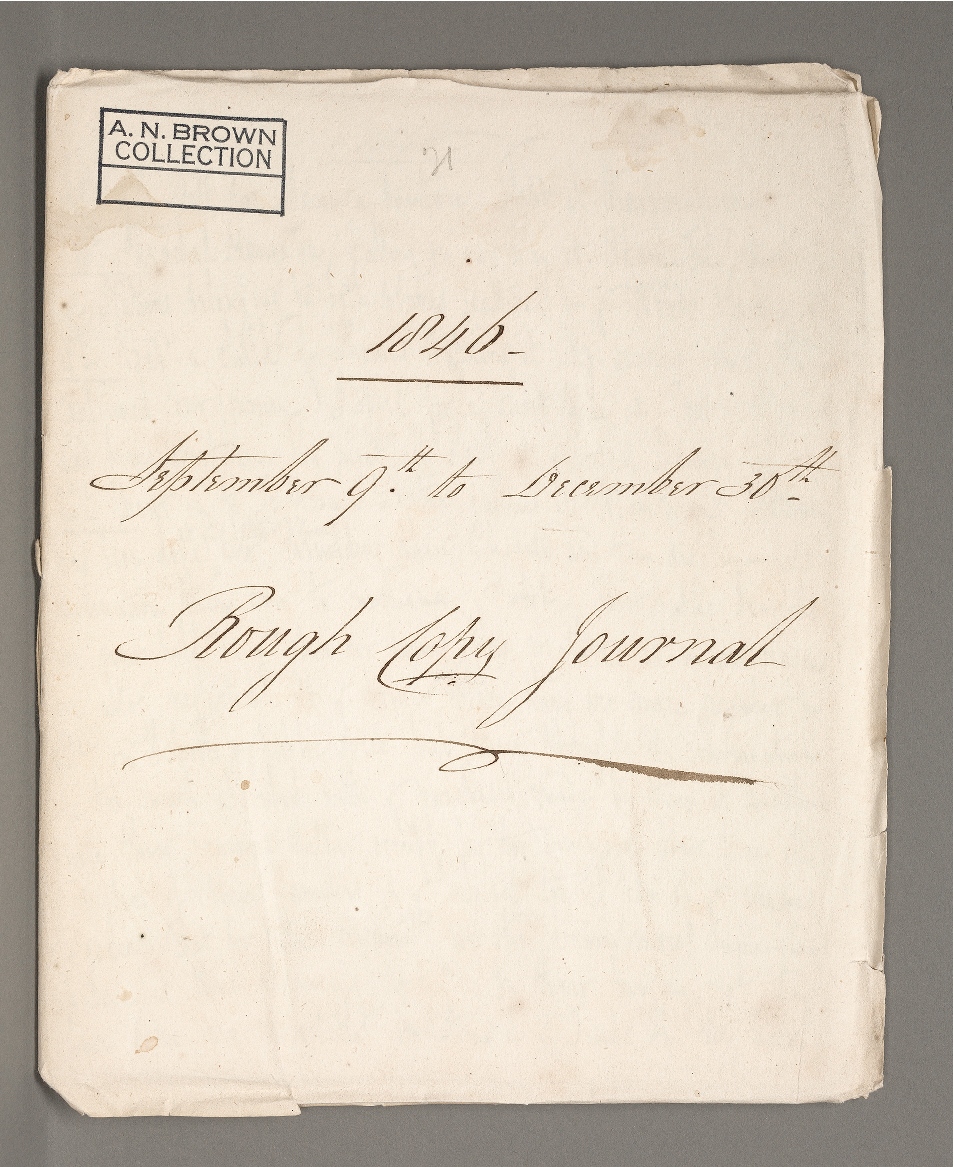 A. N. BROWN
COLLECTION
1846-
September 9th. to December 30th
Rough Copy Journal